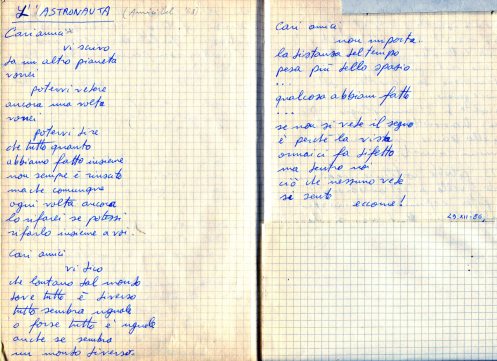 L'ASTRONAUTA (Amici del '68)
Cari amici
vi scrivo
da un altro pianeta
vorrei
potervi vedere
ancora una volta
vorrei
potervi dire
che tutto quanto
abbiamo fatto insieme
non sempre è riuscito
ma che comunque
ogni volta ancora
lo rifarei se potessi
rifarlo insieme a voi.
Cari amici
vi dico
che lontano dal mondo
dove tutto è diverso
tutto sembra uguale
o forse tutto è uguale
anche se sembra
un mondo diverso.
Cari amici
non importa
la distanza del tempo
pesa più dello spazio
...
qualcosa abbiam fatto
...
se non si vede il segno
è perché la vista
ormai ci fa difetto
ma dentro noi
ciò che nessuno vede
si sente
eccome!
29.XII.86.